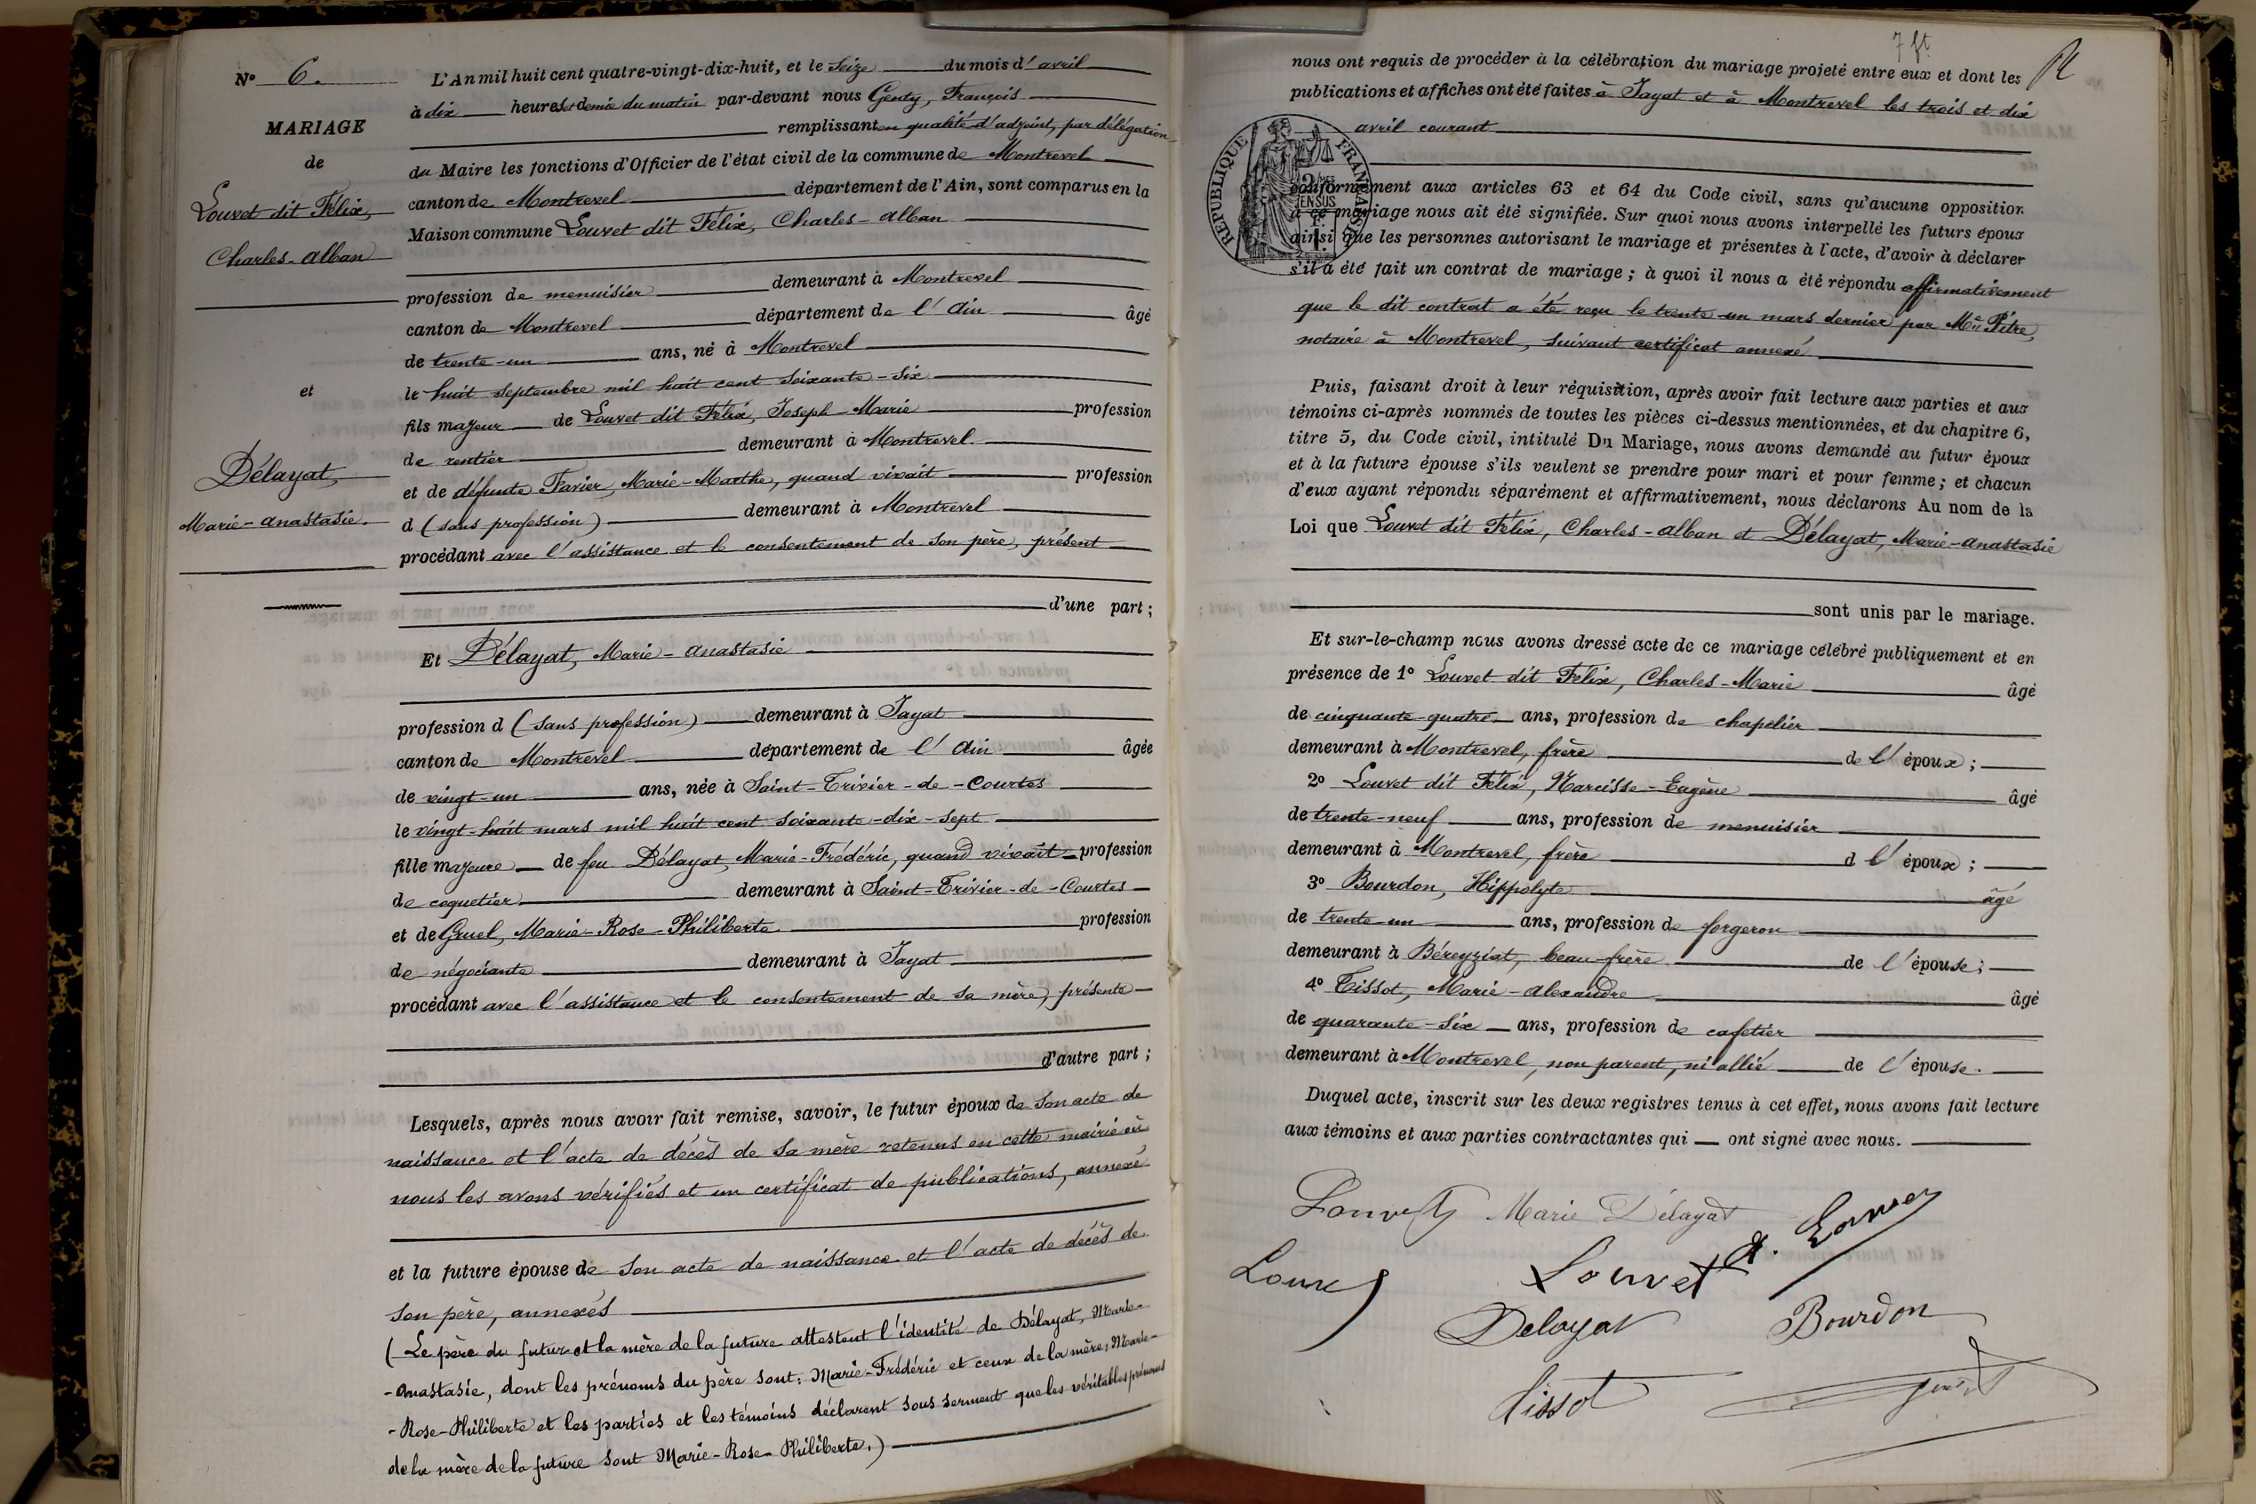 N° 6.
MARIAGE
de
Louvet dit Félix,
Charles-Alban
et
Délayat,
Marie-Anastasie.
L'An mil huit cent quatre-vingt-dix-huit, et le seize du mois d'avril
à dix heures & demie du matin par-devant nous Genty, François
remplissant en qualité d'adjoint, par délégation
du Maire les fonctions d'Officier de l'état civil de la commune de Montrevel
canton de Montrevel département de l'Ain, sont comparus en la
Maison commune Louvet dit Félix, Charles-Alban
profession de menuisier demeurant à Montrevel
canton de Montrevel département de l'Ain âgé
de trente-un ans, né à Montrevel
le huit septembre mil huit cent soixante-six
fils majeur de Louvet dit Félix, Joseph-Marie profession
de rentier demeurant à Montrevel.
et de défunte Favier, Marie-Marthe, quand vivait profession
d (sans profession) demeurant à Montrevel
procédant avec l'assistance et le consentement de son père, présent
d'une part ;
Et Délayat, Marie-Anastasie
profession d (sans profession) demeurant à Jayat
canton de Montrevel département de l'Ain âgée
de vingt-un ans, née à Saint-Trivier-de-Courtes
le vingt-huit mars mil huit cent soixante-dix-sept
fille majeure de feu Délayat, Marie-Frédéric, quand vivait profession
de coquetier demeurant à Saint-Trivier-de-Courtes
et de Gruel, Marie-Rose-Philiberte profession
de négociante demeurant à Jayat
procédant avec l'assistance et le consentement de sa mère, présente
d'autre part ;
Lesquels, après nous avoir fait remise, savoir, le futur époux de son acte de
naissance et l'acte de décès de sa mère retenus en cette mairie où
nous les avons vérifiés et un certificat de publications, annexé
et la future épouse de son acte de naissance et l'acte de décès de
son père, annexés
(Le père du futur et la mère de la future attestent l'identité de Délayat, Marie-
-Anastasie, dont les prénoms du père sont: Marie-Frédéric et ceux de la mère: Marie-
-Rose-Philiberte et les parties et les témoins déclarent sous serment que les véritables prénoms
de la mère de la future sont Marie-Rose-Philiberte.)
7 ft
nous ont requis de procéder à la célébration du mariage projeté entre eux et dont les
publications et affiches ont été faites à Jayat et à Montrevel les trois et dix
avril courant
REPUBLIQUE FRANÇAISE
conformément aux articles 63 et 64 du Code civil, sans qu'aucune opposition
à ce mariage nous ait été signifiée. Sur quoi nous avons interpellé les futurs époux
ainsi que les personnes autorisant le mariage et présentes à l'acte, d'avoir à déclarer
s'il a été fait un contrat de mariage ; à quoi il nous a été répondu affirmativement
que le dit contrat a été reçu le trente un mars dernier par Me Pitre,
notaire à Montrevel, suivant certificat annexé
Puis, faisant droit à leur réquisition, après avoir fait lecture aux parties et aux
témoins ci-après nommés de toutes les pièces ci-dessus mentionnées, et du chapitre 6,
titre 5, du Code civil, intitulé Du Mariage, nous avons demandé au futur époux
et à la future épouse s'ils veulent se prendre pour mari et pour femme ; et chacun
d'eux ayant répondu séparément et affirmativement, nous déclarons Au nom de la
Loi que Louvet dit Félix, Charles-Alban et Délayat, Marie-Anastasie
sont unis par le mariage.
Et sur-le-champ nous avons dressé acte de ce mariage célébré publiquement et en
présence de 1° Louvet dit Félix, Charles-Marie âgé
de cinquante-quatre ans, profession de chapelier
demeurant à Montrevel, frère de l'époux ;
2° Louvet dit Félix, Narcisse-Eugène âgé
de trente-neuf ans, profession de menuisier
demeurant à Montrevel, frère d l'époux ;
3° Bourdon, Hippolyte âgé
de trente-un ans, profession de forgeron
demeurant à Béreyziat, beau-frère de l'épouse ;
4° Tissot, Marie-Alexandre âgé
de quarante-six ans, profession de cafetier
demeurant à Montrevel, non parent, ni allié de l'épouse.
Duquel acte, inscrit sur les deux registres tenus à cet effet, nous avons fait lecture
aux témoins et aux parties contractantes qui ont signé avec nous.
Louvet Marie Délayat
Louvet
Delayat Bourdon
Tissot